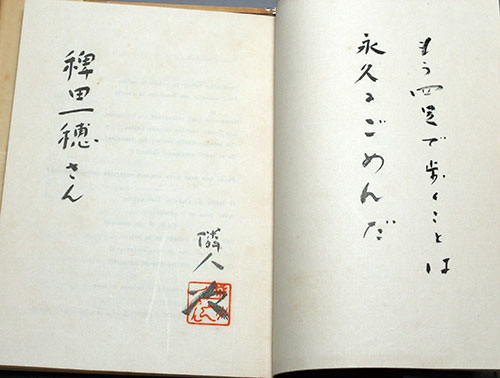 もう四足で歩くことは
永久にごめんだ
稗田一穂さん
隣人